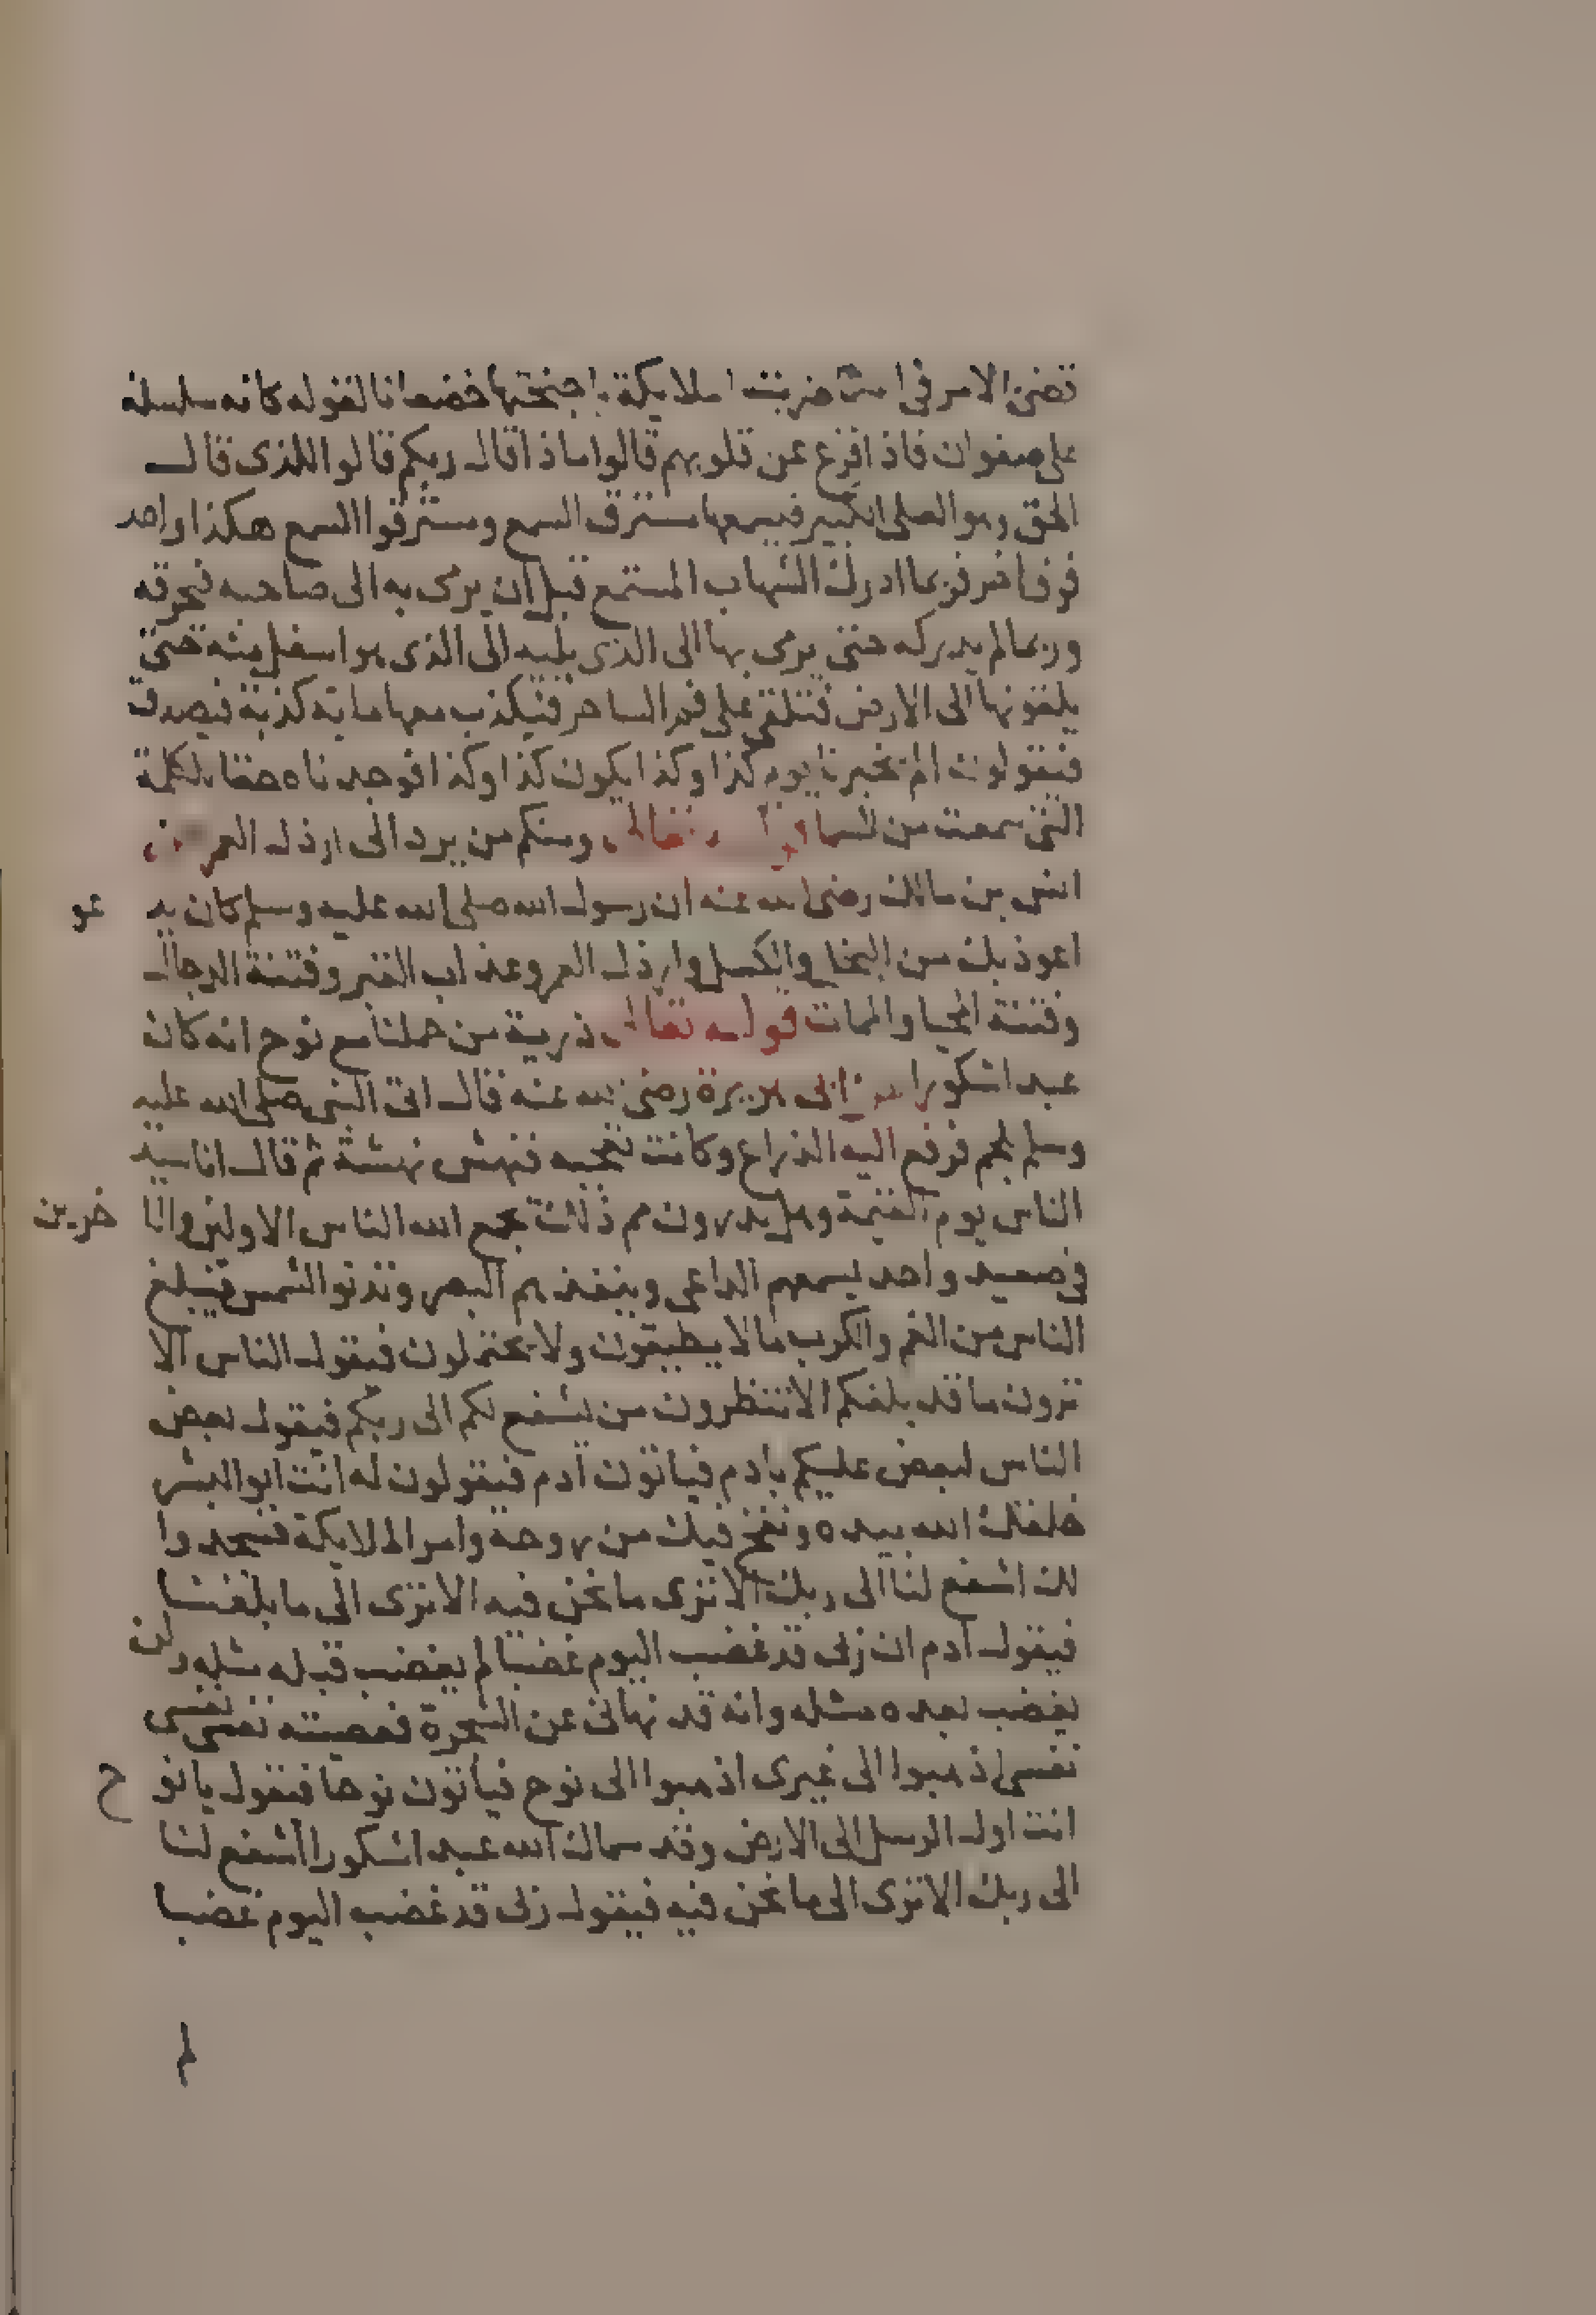 قضى الامر في السماء ضربت الملايكة باجنحتها خضعانا لقوله كانه سلسلة
على صفوان فاذا فزع عن قلوبهم قالوا ماذا قال ربكم قالوا للذى قال
الحق وهو العلى الكبير فيسمعها مسترق السمع ومسترقوا السمع هكذا واحد
فوق اخر فربما ادرك الشهاب المستمع قبل ان يرمى به الى صاحبه فيحرقه
وربما لم يدركه حتى يرمى بها الى الذى يليه الى الذى هو اسفل منه حتى
يلقونها الى الارض فتلقى على فم الساحر فيكذب معها ماية كذبة فيصدق
فيقولون الم تخبرنا يوم كذا وكذا يكون كذا وكذا فوجدناه حقا للكلمة
التى سمعت من السماء تعالى ومنكم من يرد الى ارذل العمر عن
انس بن مالك رضى الله عنه ان رسول الله صلى الله عليه وسلم كان يدعو
اعوذ بك من البخل والكسل وارذل العمر وعذاب القبر وفتنة الدجال
وفتنة المحيا والممات قوله تعالى ذرية من حملنا مع نوح انه كان
عبدا شكورا عن ابى هريرة رضى الله عنه قال اتى النبى صلى الله عليه
وسلم بلحم فرفع اليه الذراع وكانت تعجبه فنهش نهشة ثم قال انا سيد
الناس يوم القيمة وهل يدرون مم ذلك يجمع الله الناس الاولين والاخرين
فى صعيد واحد يسمعهم الداعى وينفذهم البصر وتدنو الشمس فيبلغ
الناس من الغم والكرب مالا يطيقون ولا يحتملون فيقول الناس الا
ترون ما قد بلغكم الا تنظرون من يشفع لكم الى ربكم فيقول بعض
الناس لبعض عليكم بادم فياتون آدم فيقولون له انت ابو البشر
خلقك الله بيده ونفخ فيك من روحه وامر الملايكة فسجدوا
لك اشفع لنا الى ربك الا ترى ما نحن فيه الا ترى الى ما بلغنا
فيقول آدم ان ربى قد غضب اليوم غضبا لم يغضب قبله مثله ولن
يغضب بعده مثله وانه قد نهانى عن الشجرة فعصيته نفسى نفسى
نفسى اذهبوا الى غيرى اذهبوا الى نوح فياتون نوحا فيقول يا نوح
انت اول الرسل الى الارض وقد سماك الله عبدا شكورا اشفع لنا
الى ربك الا ترى الى ما نحن فيه فيقول ربى قد غضب اليوم غضبا
لم